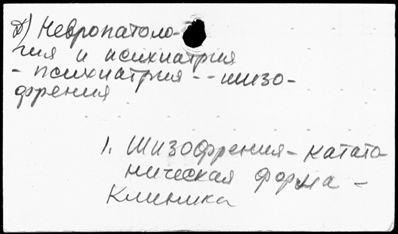 Д) Невропатоло-
гия и психиатрия
- психиатрия -- шизо-
френия
1. Шизофрения - катато
ническая форма -
клиника